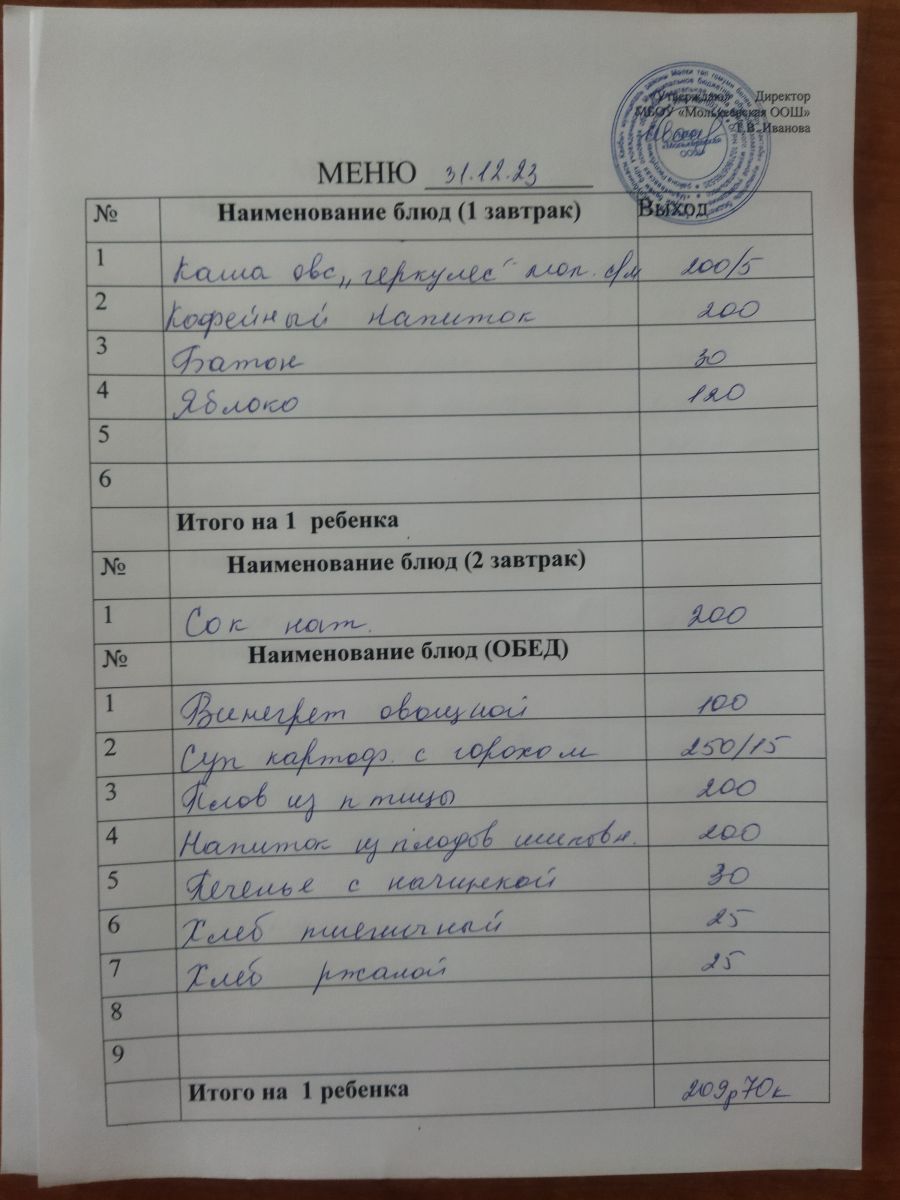 «Утверждаю» Директор
МБОУ «Молькеевская ООШ»
Т.В. Иванова
МЕНЮ 31.12.23
№ Наименование блюд (1 завтрак) Выход
1 Каша овс „геркулес" мол. с/м 200/5
2 Кофейный напиток 200
3 Батон 30
4 Яблоко 120
5
6
Итого на 1 ребенка
№ Наименование блюд (2 завтрак)
1 Сок нат. 200
№ Наименование блюд (ОБЕД)
1 Винегрет овощной 100
2 Суп картоф. с горохом 250/15
3 Плов из птицы 200
4 Напиток из плодов шиповн. 200
5 Печенье с начинкой 30
6 Хлеб пшеничный 25
7 Хлеб ржаной 25
8
9
Итого на 1 ребенка 209р70к